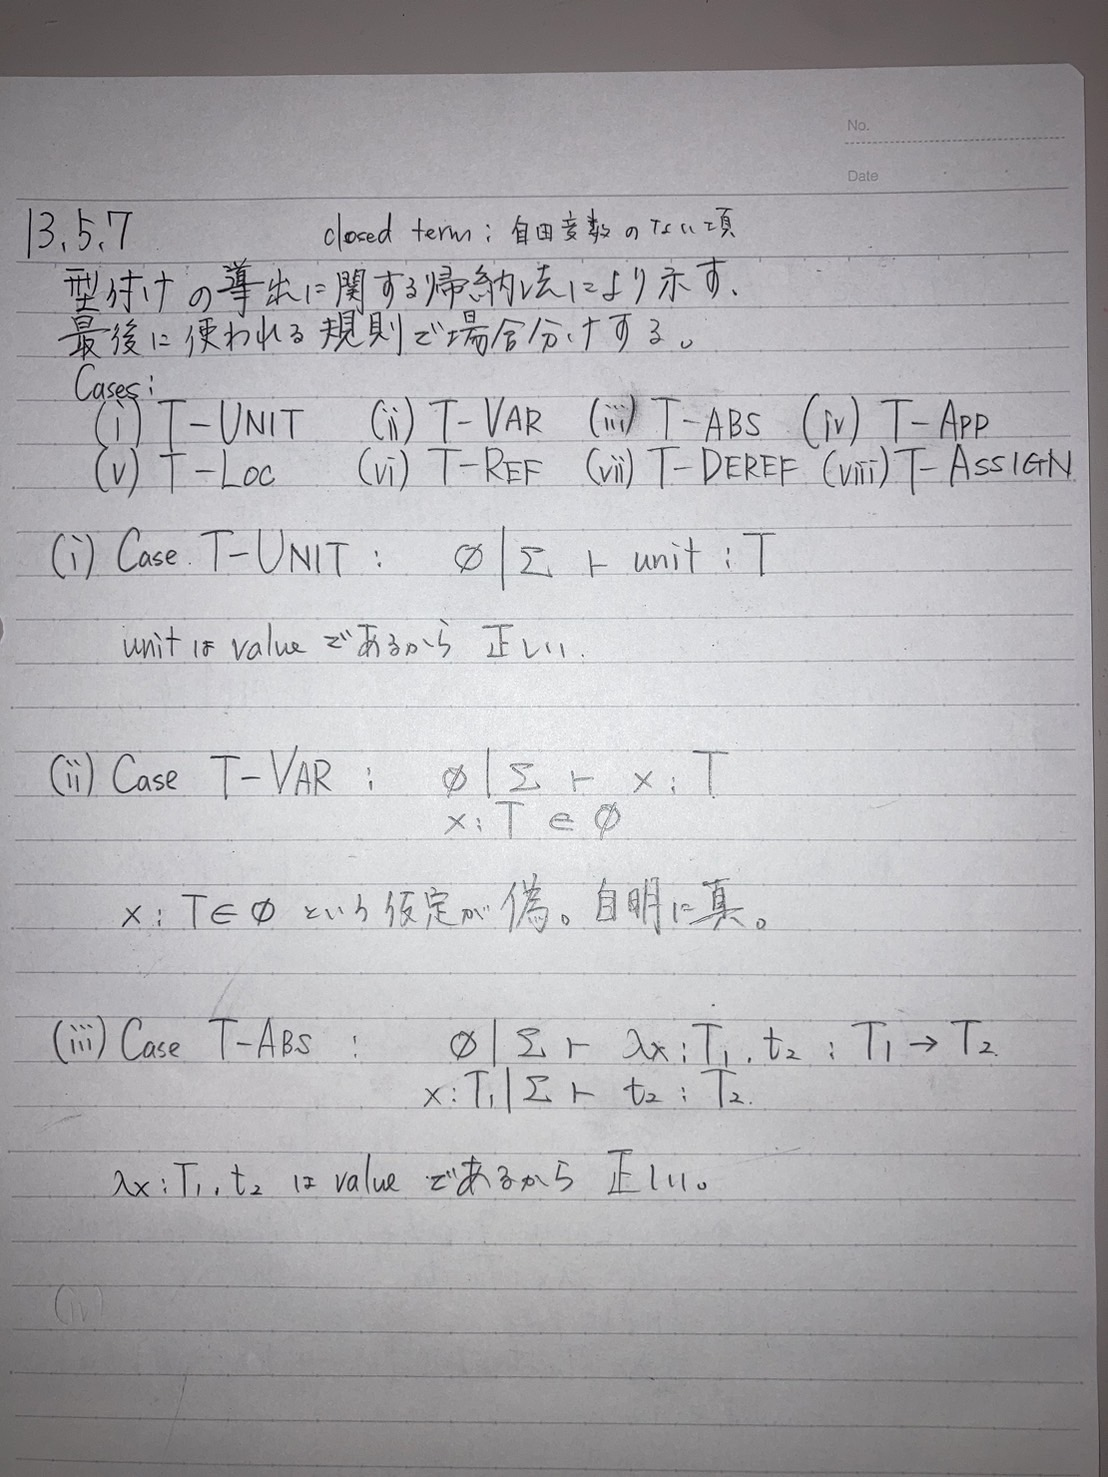 No.
Date
13.5.7 closed term : 自由変数のない項
型付けの導出に関する帰納法により示す.
最後に使われる規則で場合分けする。
Cases:
(i) T-UNIT (ii) T-VAR (iii) T-ABS (iv) T-APP
(v) T-LOC (vi) T-REF (vii) T-DEREF (viii) T-ASSIGN
(i) Case T-UNIT : ∅ | Σ ⊢ unit : T
unit は value であるから 正しい.
(ii) Case T-VAR : ∅ | Σ ⊢ x : T
x : T ∈ ∅
x : T ∈ ∅ という仮定が偽。自明に真。
(iii) Case T-ABS : ∅ | Σ ⊢ λx : T₁. t₂ : T₁ → T₂
x : T₁ | Σ ⊢ t₂ : T₂.
λx : T₁. t₂ は value であるから 正しい。
(iv)